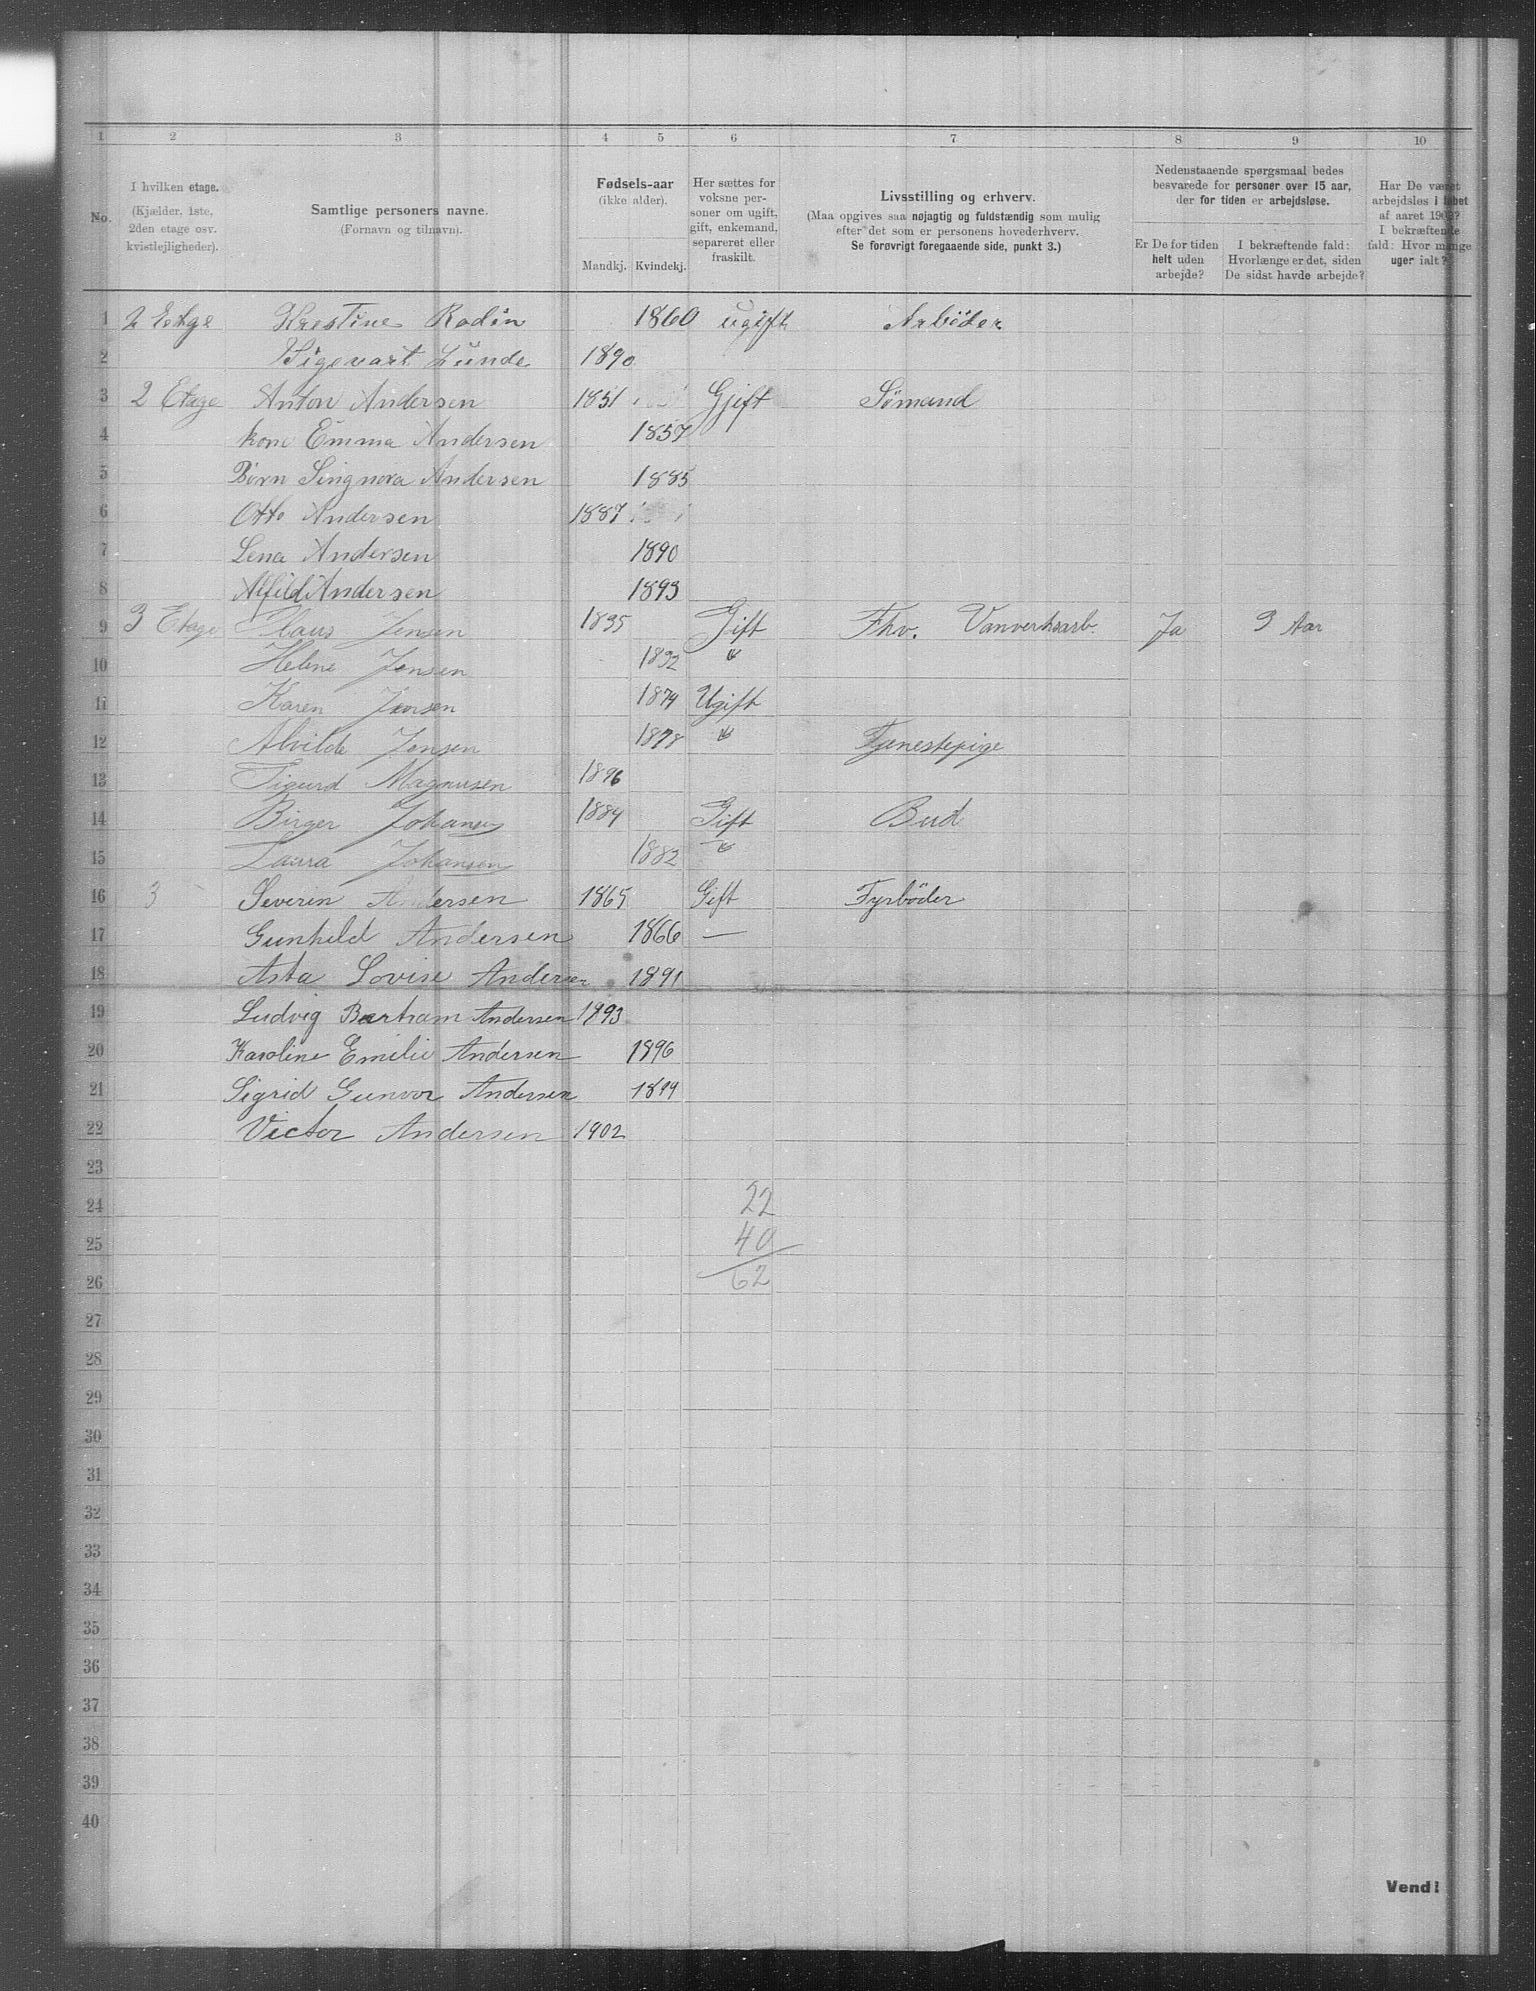 1 2 3 4 5 6 7 8 9 10
No.
I hvilken etage.
(Kjælder, 1ste,
2den etage osv.
kvistlejligheder).
Samtlige personers navne.
(Fornavn og tilnavn).
Fødsels-aar
(ikke alder).
Mandkj. Kvindekj.
Her sættes for
voksne per-
soner om ugift,
gift, enkemand,
separeret eller
fraskilt.
Livsstilling og erhverv.
(Maa opgives saa nøjagtig og fuldstændig som mulig
efter det som er personens hovederhverv.
Se forøvrigt foregaaende side, punkt 3.)
Nedenstaaende spørgsmaal bedes
besvarede for personer over 15 aar,
der for tiden er arbejdsløse.
Er De for tiden
helt uden
arbejde?
I bekræftende fald:
Hvorlænge er det, siden
De sidst havde arbejde?
Har De været
arbejdsløs i løbet
af aaret 190?
I bekræftende
fald: Hvor mange
uger ialt?
1 2 Etage Krestine Rodin 1860 ugift Arbeider
2 Sigevart Lunde 1890
3 2 Etage Anton Andersen 1851 Gjift Sømand
4 kone Emma Andersen 1857
5 Børn Singnora Andersen 1885
6 Otto Andersen 1887
7 Lena Andersen 1890
8 Alfild Andersen 1893
9 3 Etage Claus Jensen 1835 Gift Fhv. Vanverksarb. Ja 9 Aar
10 Helene Jensen 1832 "
11 Karen Jensen 1874 Ugift
12 Alvilde Jensen 1878 " Tjenestepige
13 Sigurd Magnusen 1896
14 Birger Johansen 1884 Gift Bud
15 Laura Johansen 1882 "
16 3 Severin Andersen 1865 Gift Fyrbøder
17 Gunhild Andersen 1866 —
18 Asta Lovise Andersen 1891
19 Ludvig Bertram Andersen 1893
20 Karoline Emilie Andersen 1896
21 Sigrid Gunvor Andersen 1899
22 Victor Andersen 1902
23
24 22
25 40
26 62
27
28
29
30
31
32
33
34
35
36
37
38
39
40
Vend!